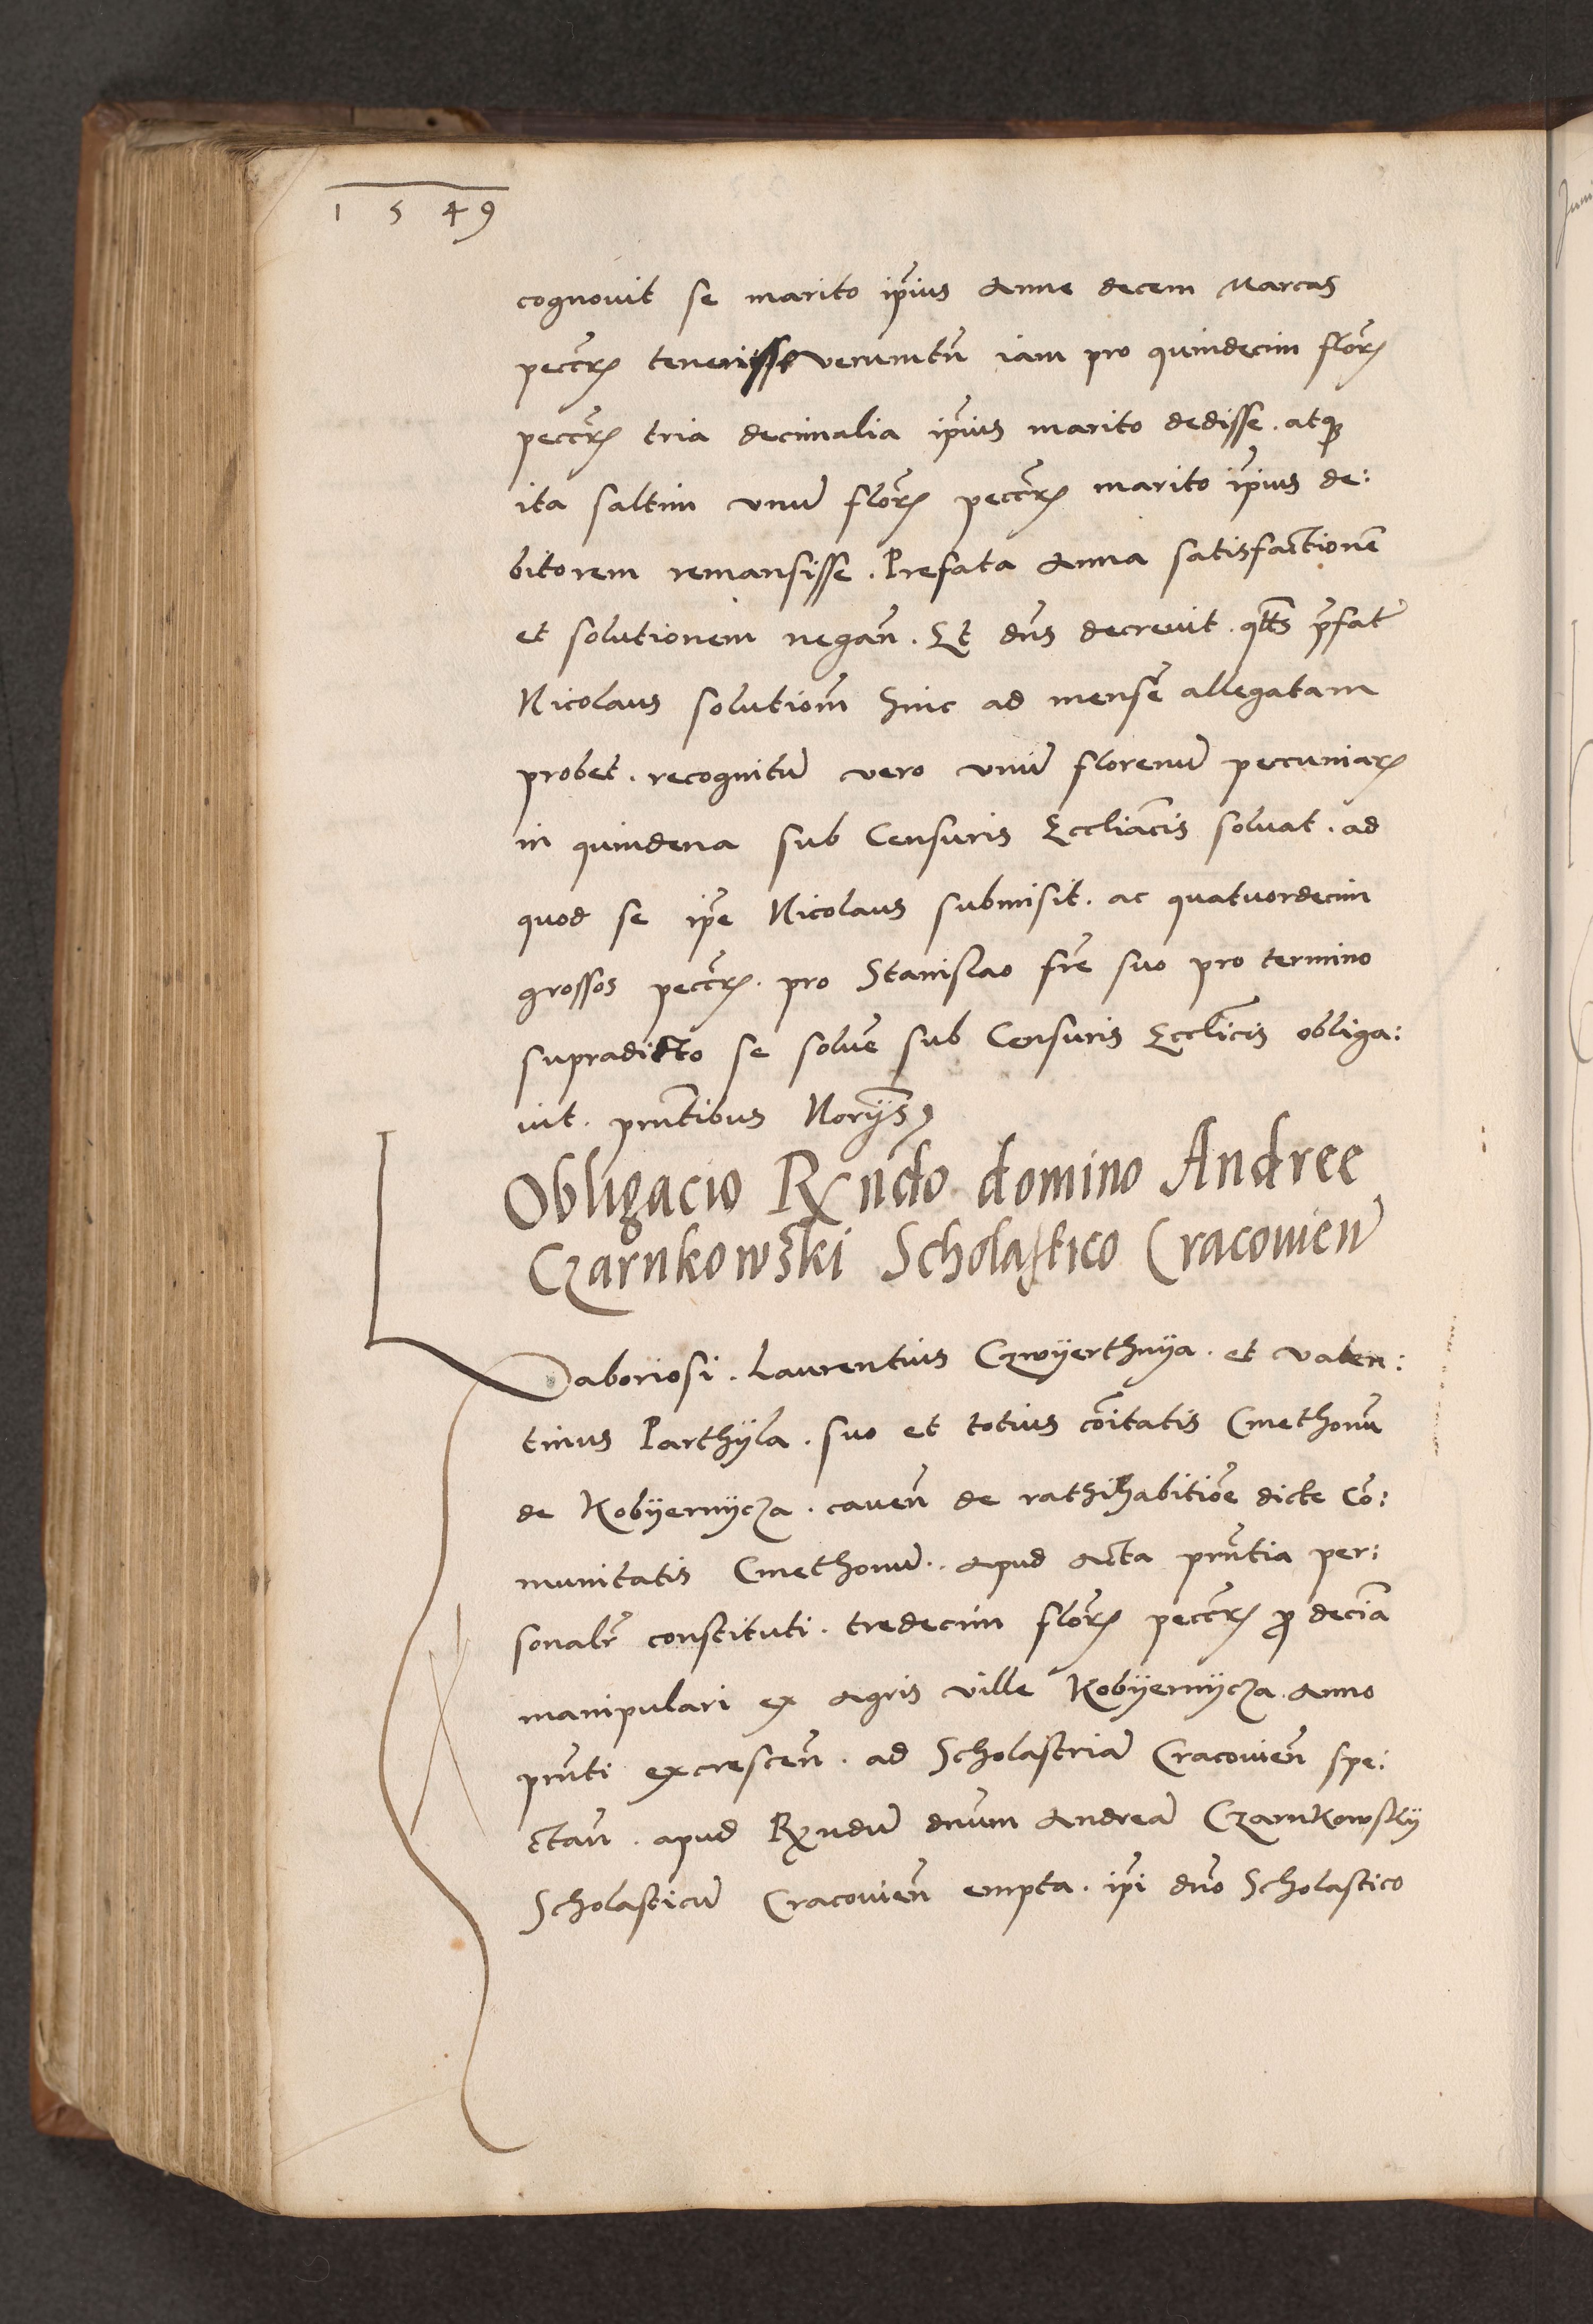 1549
cognovit se marito ip̃ius Anne decem Marcas
peccr̃ teneri verumtñ iam pro quindecim flor̃
peccr̃ tria decimalia ip̃ius marito dedisse. atqꝫ
ita saltim vnũ flor̃ peccr̃ marito ip̃ius de:
bitorem remansisse. Prefata Anna satisfactionẽ
et solutionem negañ. Et dñs decrevit. qtñs p̃fat9
Nicolaus solutiom̃ hinc ad mensẽ allegatam
probet. recognitũ vero vnũ florenũ peccuniar̃
in quindena sub Censuris Eccliac̃is solvat. ad
quod se ip̃e Nicolaus submisit. ac quatuordecim
grossos peccr̃. pro Stanislao fr̃e suo pro termino
supradicto se solvẽ sub Censuris Eccl̃icis obliga:
vit. prñtibus Norijs
Obligacio Rndo domino Andree
Czarnkowski Scholastico Cracovieñ
Laboriosi. Laurentius Czwyerthnya. et Valen:
tinus Parthyla. suo et totius cõitatis Cmethonũ
de Kobyernycza. caveñ de rathihabitiõe dicte Cõ:
munitatis Cmethonũ. apud Acta prñtia per:
sonalr̃ constituti. tredecim flor̃ peccr̃ ꝓ decĩa
manipulari ex Agris ville Kobyernycza. Anno
prñti excresceñ. ad Scholastriã Cracovieñ spe:
ctañ. apud Rndũ dnum Andreã Czarnkowsky
Scholasticũ Cracovieñ empta. ip̃i dño Scholastico